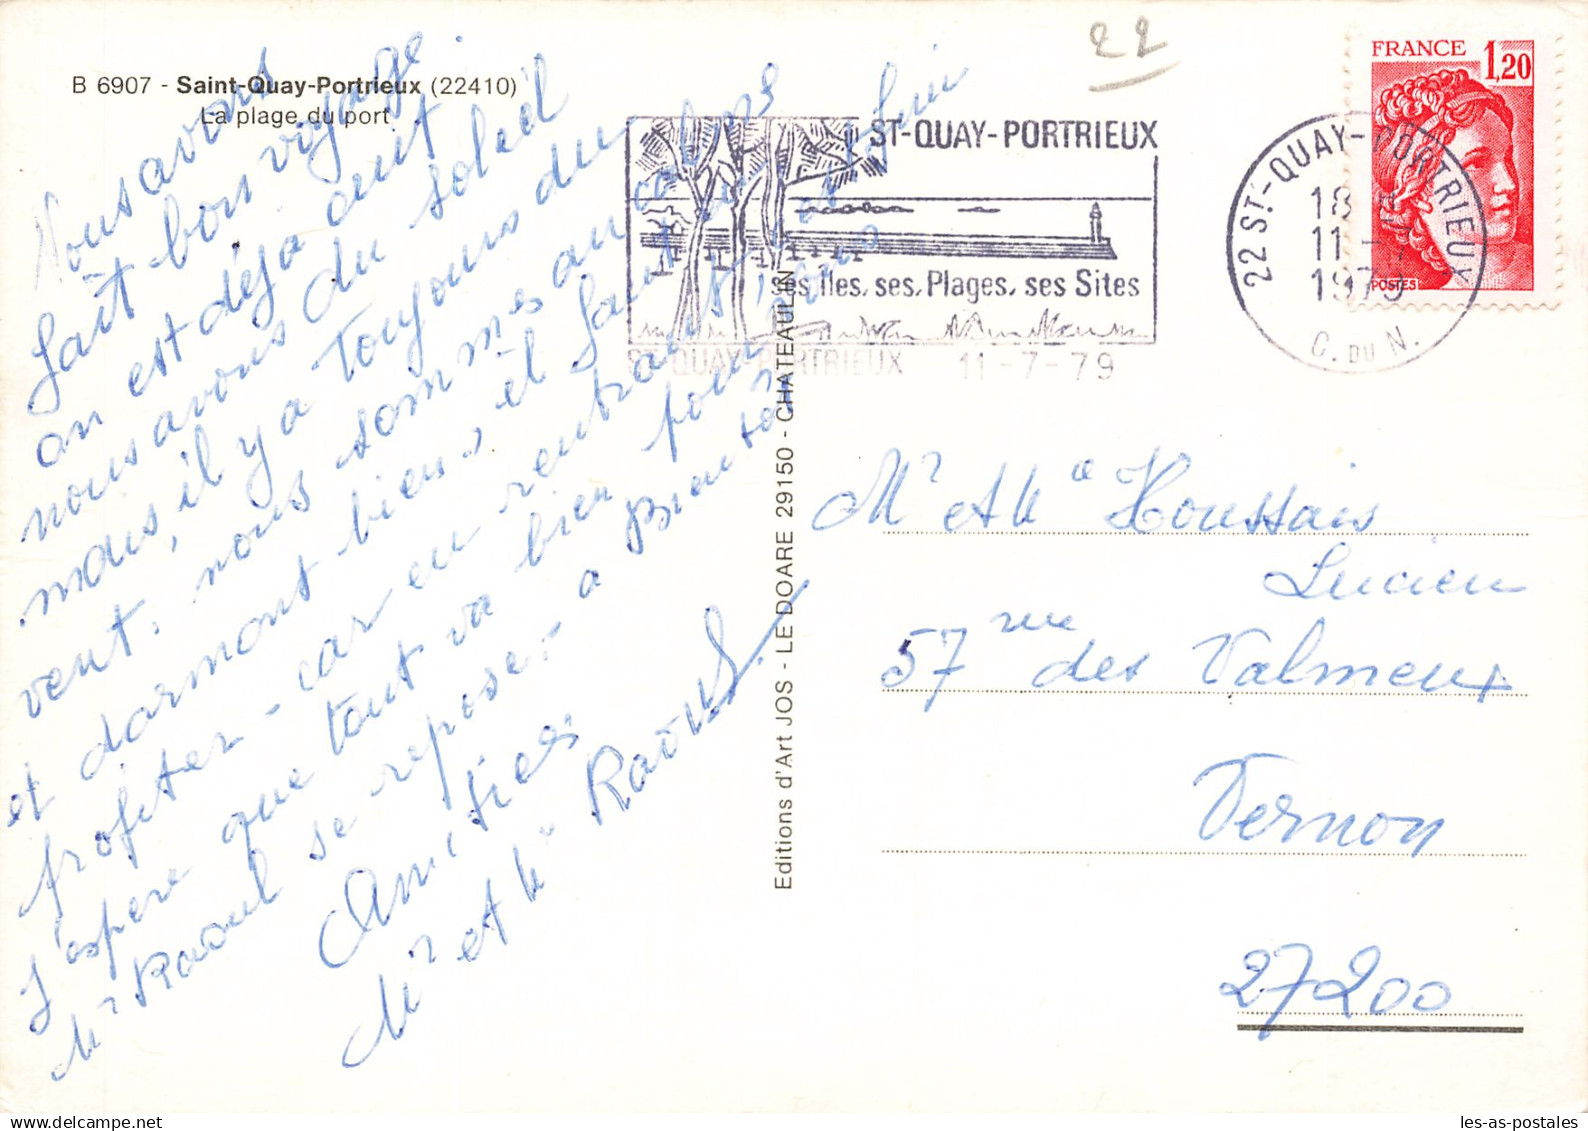 22
B 6907 - Saint-Quay-Portrieux (22410)
La plage du port
Nous avons
fait bon voyage.
on est déja cuit
nous avons du soleil
mais, il y a toujours du
vent. nous sommes au calme
et dormont bien, il faut
profiter - car en rentrant
J'espère que tout va bien pour
Mr Raoul se repose. a Bientôt
Amitiés
Mr et Me Raoul.
Editions d'Art JOS - LE DOARE 29150 - CHATEAULIN
ST-QUAY-PORTRIEUX
ses Iles, ses Plages, ses Sites
ST-QUAY-PORTRIEUX 11-7-79
22 ST-QUAY-PORTRIEUX
18 H
11-7
1979
C. DU N.
FRANCE 1,20
POSTES
Mr et Me Houssais
Lucien
57 rue des Valmeux
Vernon
27200
les-as-postales